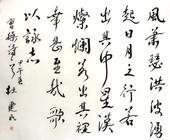 風蕭瑟洪波湧
起日月之行若
出其中星漢
燦爛若出其裡
幸甚至哉歌
以詠志
曹操詩 甲午 杜